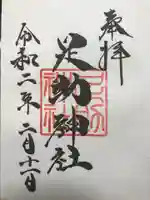 奉拝
足助神社
令和二年二月十一日